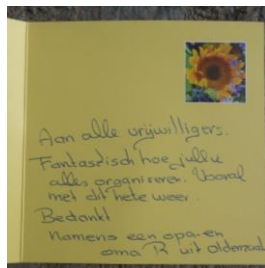 Aan alle vrijwilligers.
Fantastisch hoe jullie
alles organiseren. Vooral
met dit hete weer.
Bedankt
Namens een opa en
oma R uit Oldenzaal